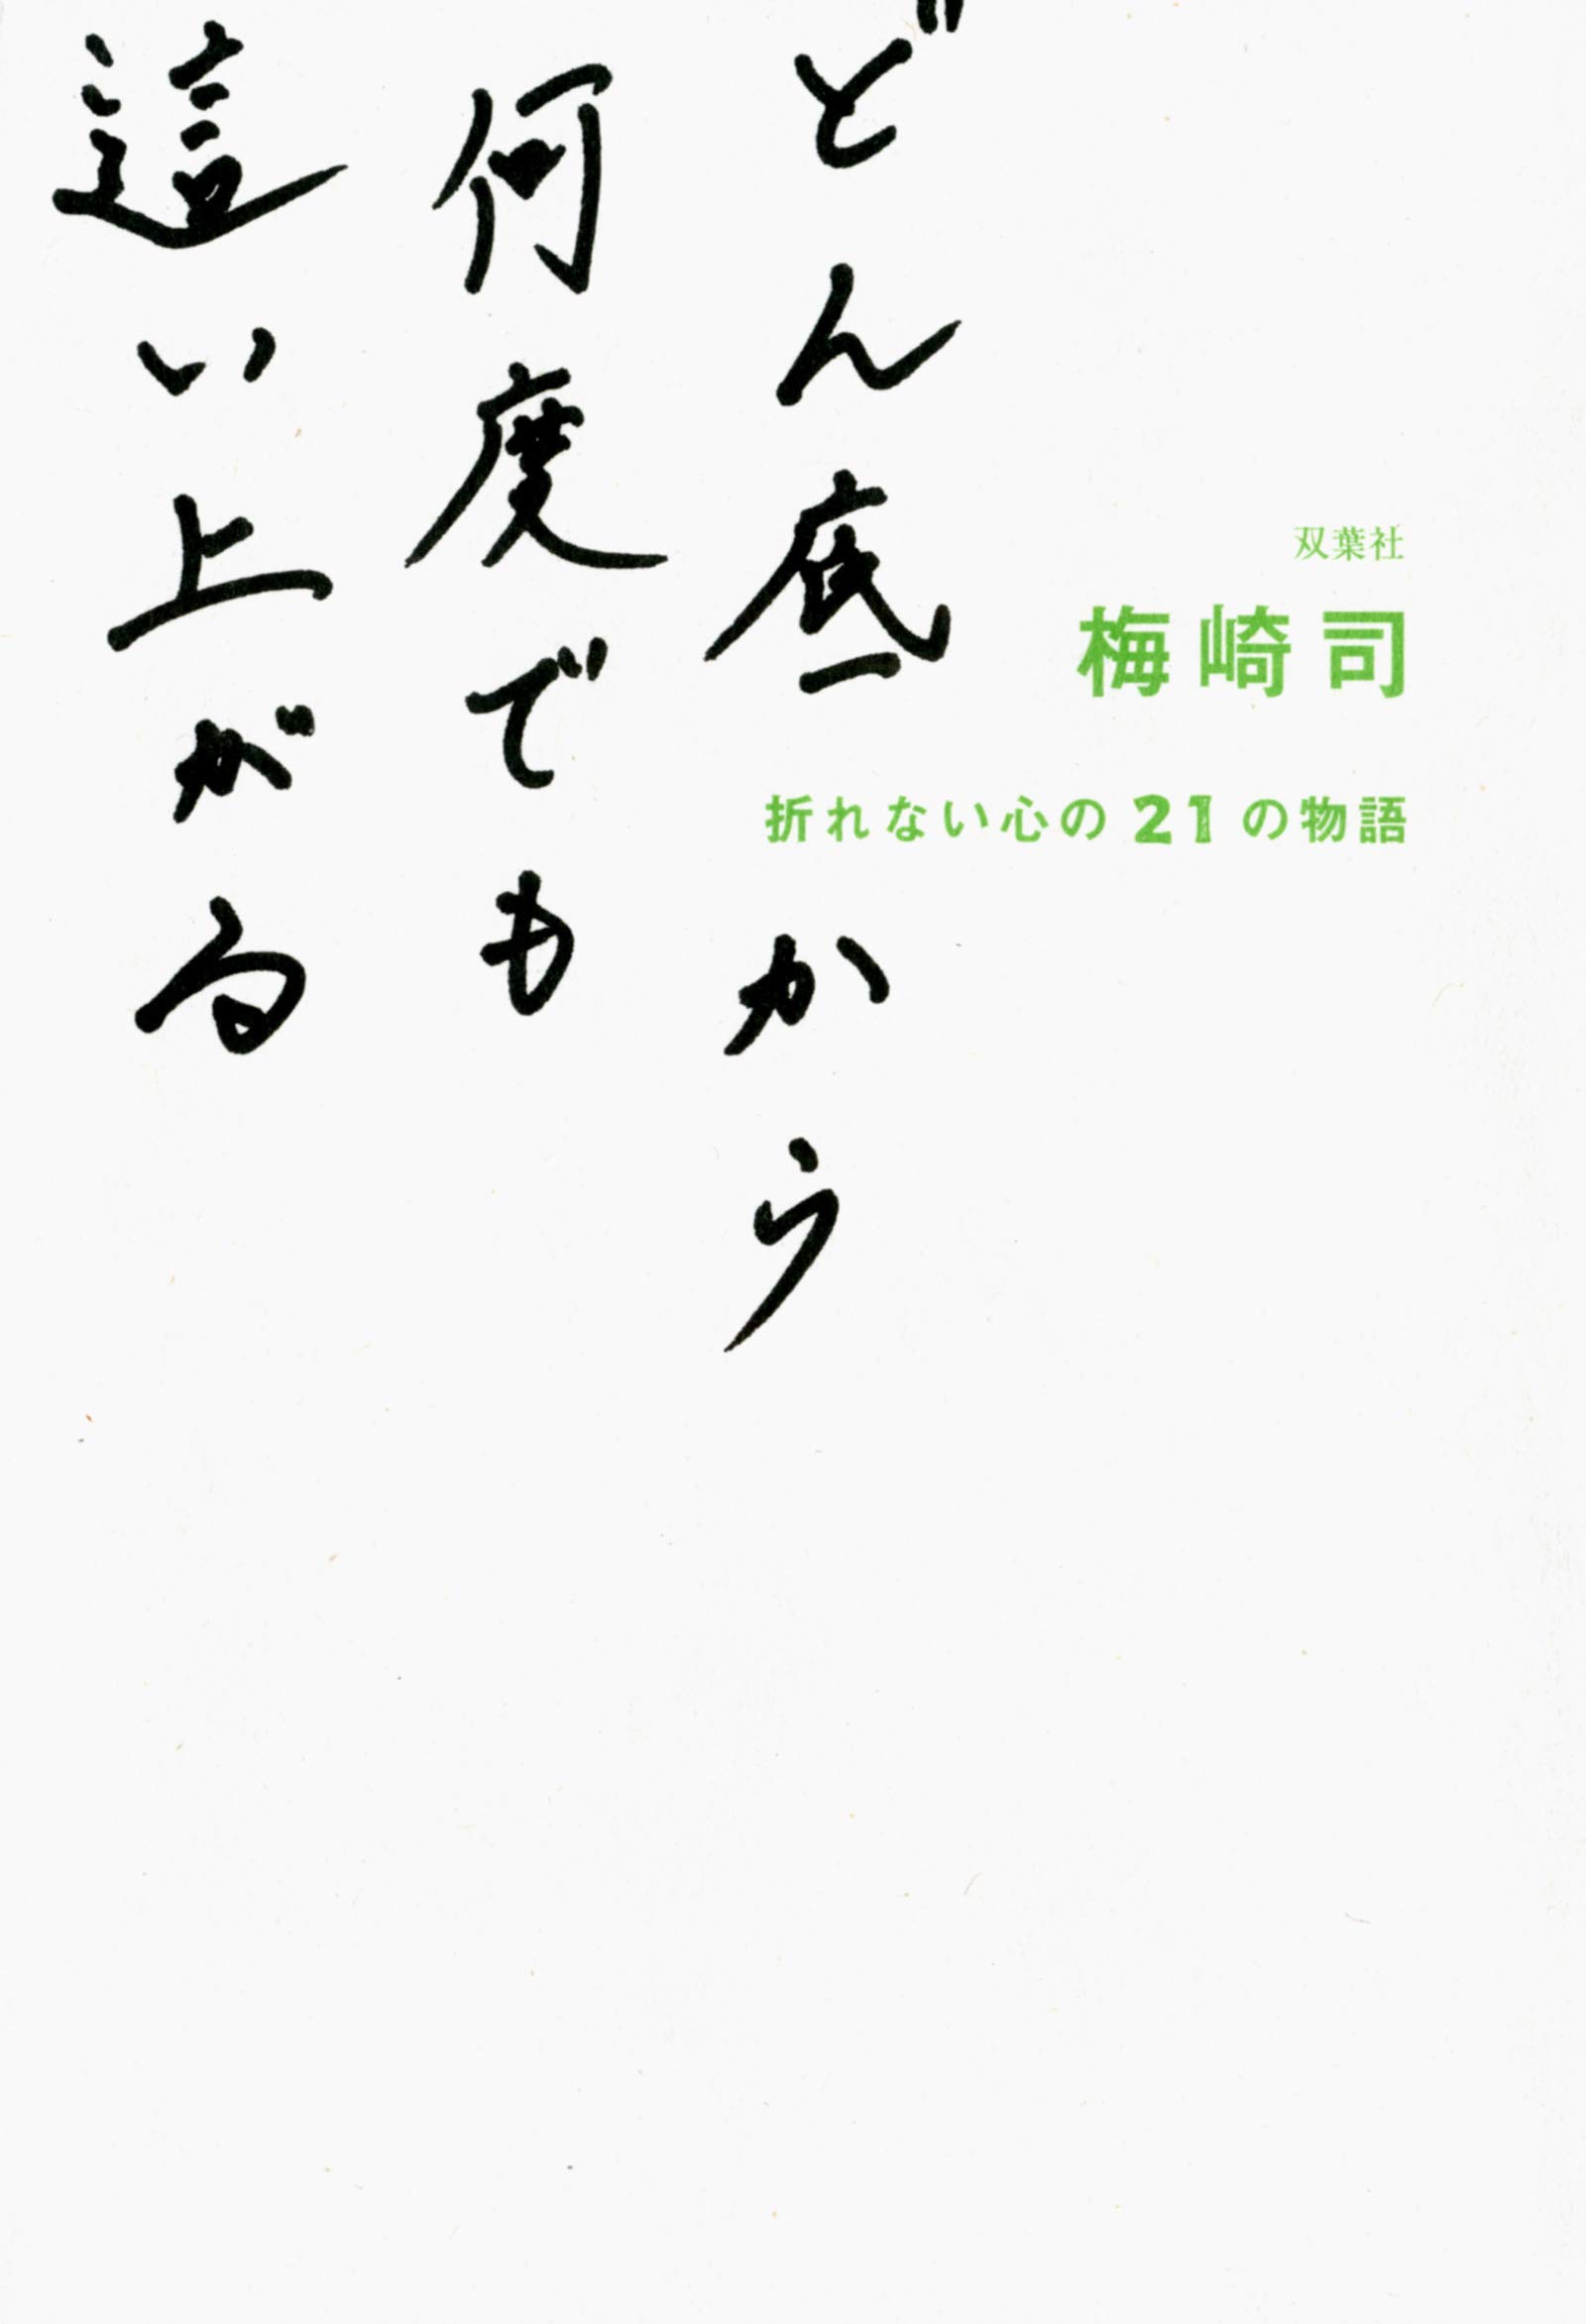 どん底から
何度でも
這い上がる
双葉社
梅崎司
折れない心の21の物語